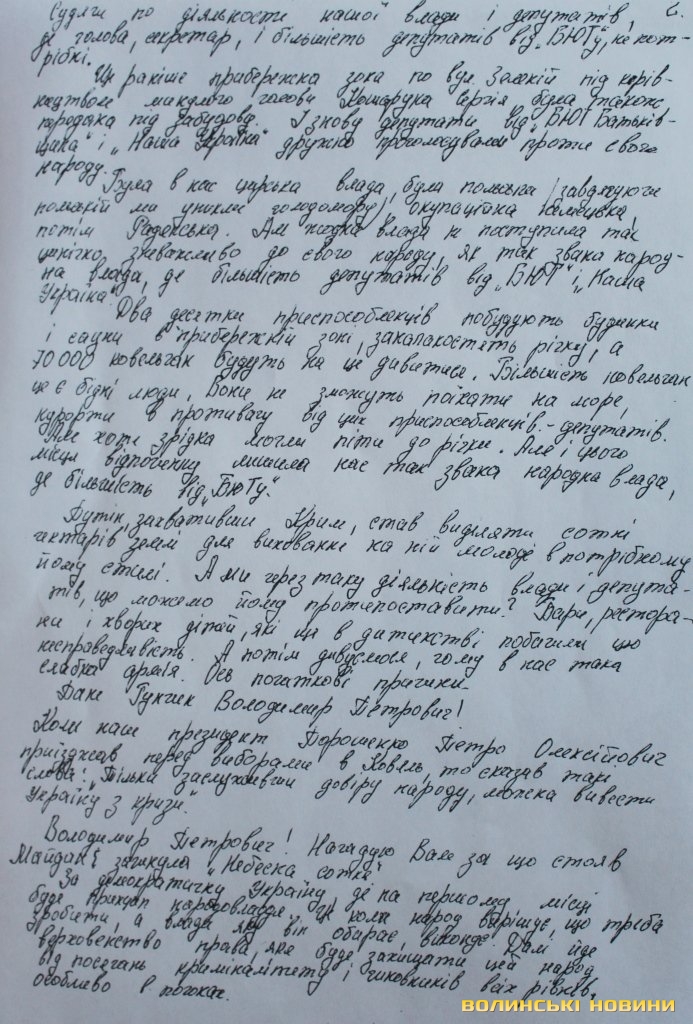 2.
Судячи по діяльності нашої влади і депутатів,
де голова, секретар, і більшість депутатів від „БЮТу", не пот-
рібні.
Ще раніше прибережна зона по вул. Заокській під керів-
ництвом минулого голови Кошарука Сергія була також
продана під забудову. І знову депутати від „БЮТ Батьків-
щина" і „Наша Україна" дружно проголосували проти свого
народу.
Була в нас царська влада, була польська (завдячуючи
польській ми уникли голодомору) окупаційна німецька,
потім Радянська. Але жодна влада не поступила так
цинічно, зневажливо до свого народу, як так звана народ-
на влада, де більшість депутатів від „БЮТ" і „Наша
Україна".
Два десятки приспособленців побудують будинки
і сауни в прибережній зоні, занапакостять річку, а
70 000 ковельчан будуть на це дивитися. Більшість ковельчан
це є бідні люди. Вони не зможуть поїхати на море,
курорти в противагу від цих приспособленців-депутатів.
Але хоть зрідка могли піти до річки. Але і цього
місця відпочинку лишила нас так звана народна влада,
де більшість від „БЮТу".
Путін, захвативши Крим, став виділяти сотні
гектарів землі для виховання на ній молоді в потрібному
йому стилі. А ми через таку діяльність влади і депута-
тів, що можемо йому протипоставити? Бари, рестора-
ни і хворих дітей, які ще в дитинстві побачили цю
несправедливість. А потім дивуємося, чому в нас така
слабка армія. Ось початкові причини.
Пане Гунчик Володимир Петрович!
Коли наш президент Порошенко Петро Олексійович
приїзджав перед виборами в Ковель, то сказав такі
слова: „Тільки заслуживши довіру народу, можна вивести
Україну з кризи."
Володимир Петрович! Нагадую Вам за що стояв
Майдан і загинула „Небесна сотня"
За демократичну Україну, де на першому місці
буде принцип народовладдя. Це коли народ вирішує, що треба
зробити, а влада, яку він обирає, виконує. Далі йде
верховенство права, яке буде захищати цей народ
від посягань криміналітету і чиновників всіх рівнів,
особливо в погонах.
ВОЛИНСЬКІ НОВИНИ